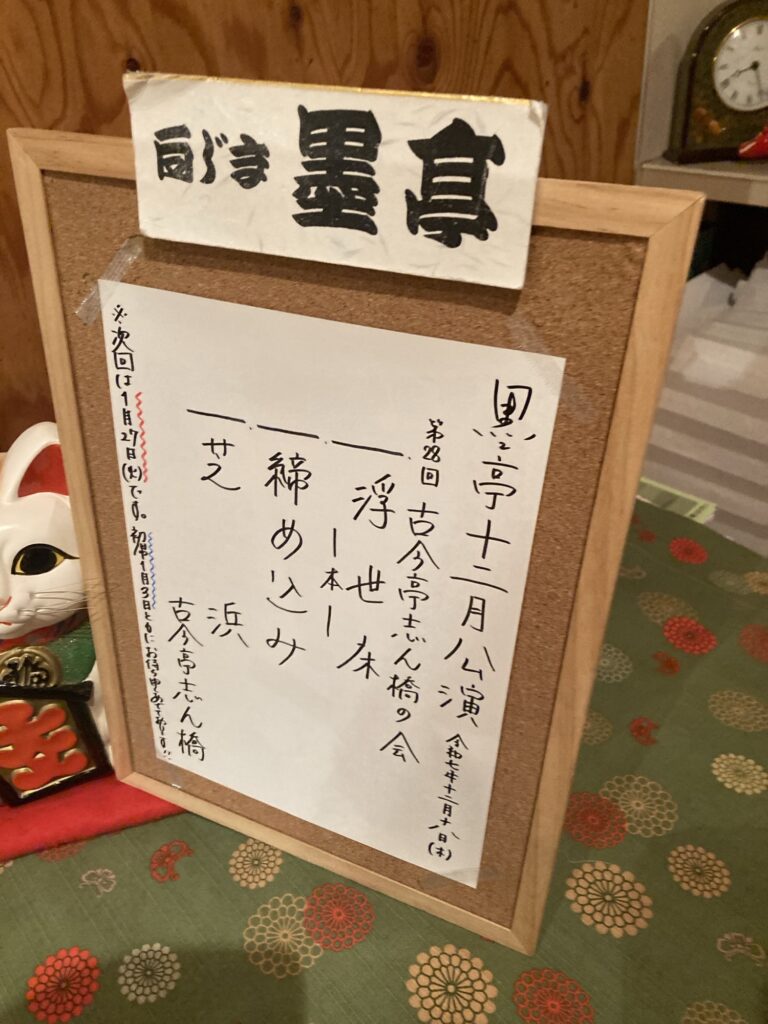 向じま 墨亭
墨亭十二月公演 令和七年十二月十八日(木)
第28回 古今亭志ん橋の会
一、浮世床
ー本ー
一、締め込み
一、芝浜
古今亭志ん橋
※次回は1月27日(火)です。初席1月3日とともにお待ち申しあげております!!